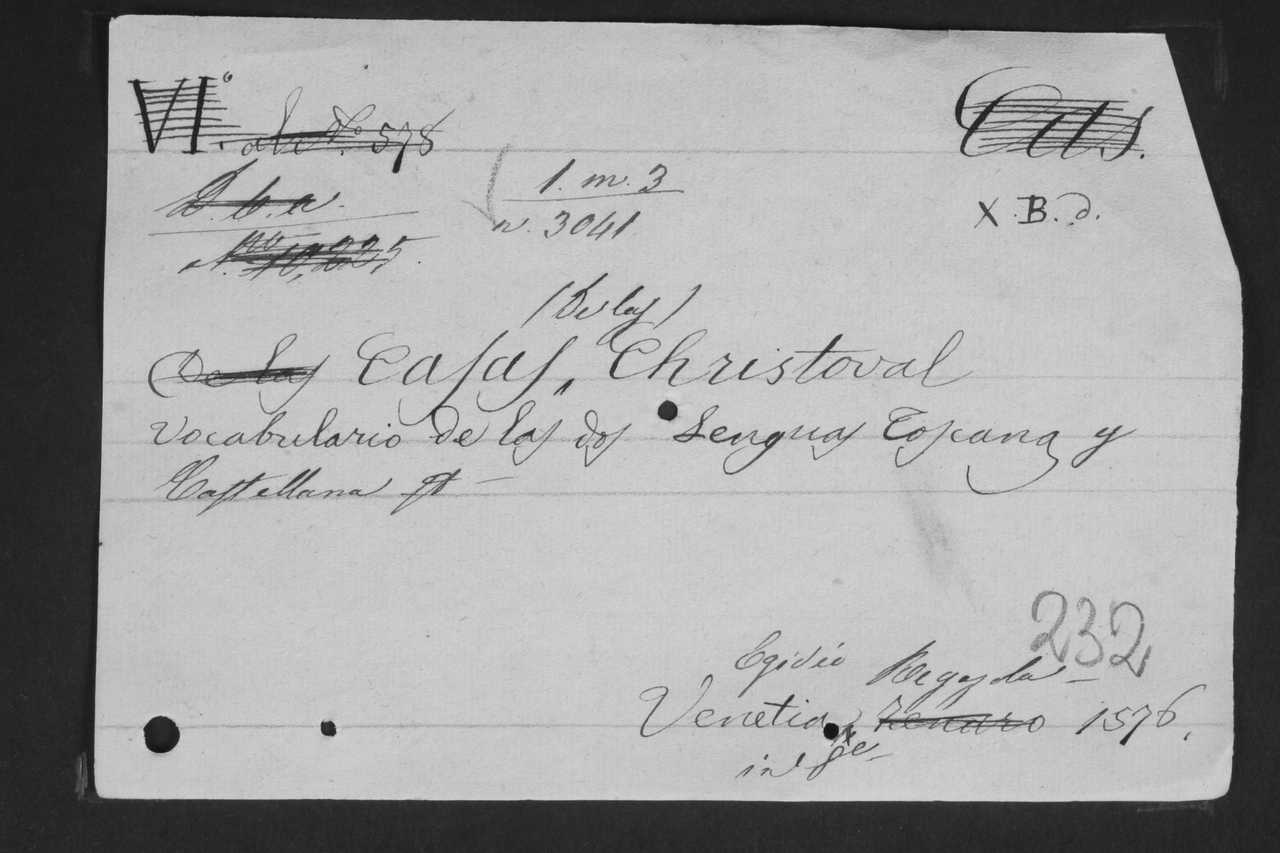 VI.º 578 Cas.
D. b. a. 1. m. 3 X. B. d.
n. 3041
(De las)
De las Casas, Christoval
Vocabulario de las dos Lenguas Toscana y
Castellana
232
Egidio Regazola
Venetia, Zenaro 1576.
in 8.º